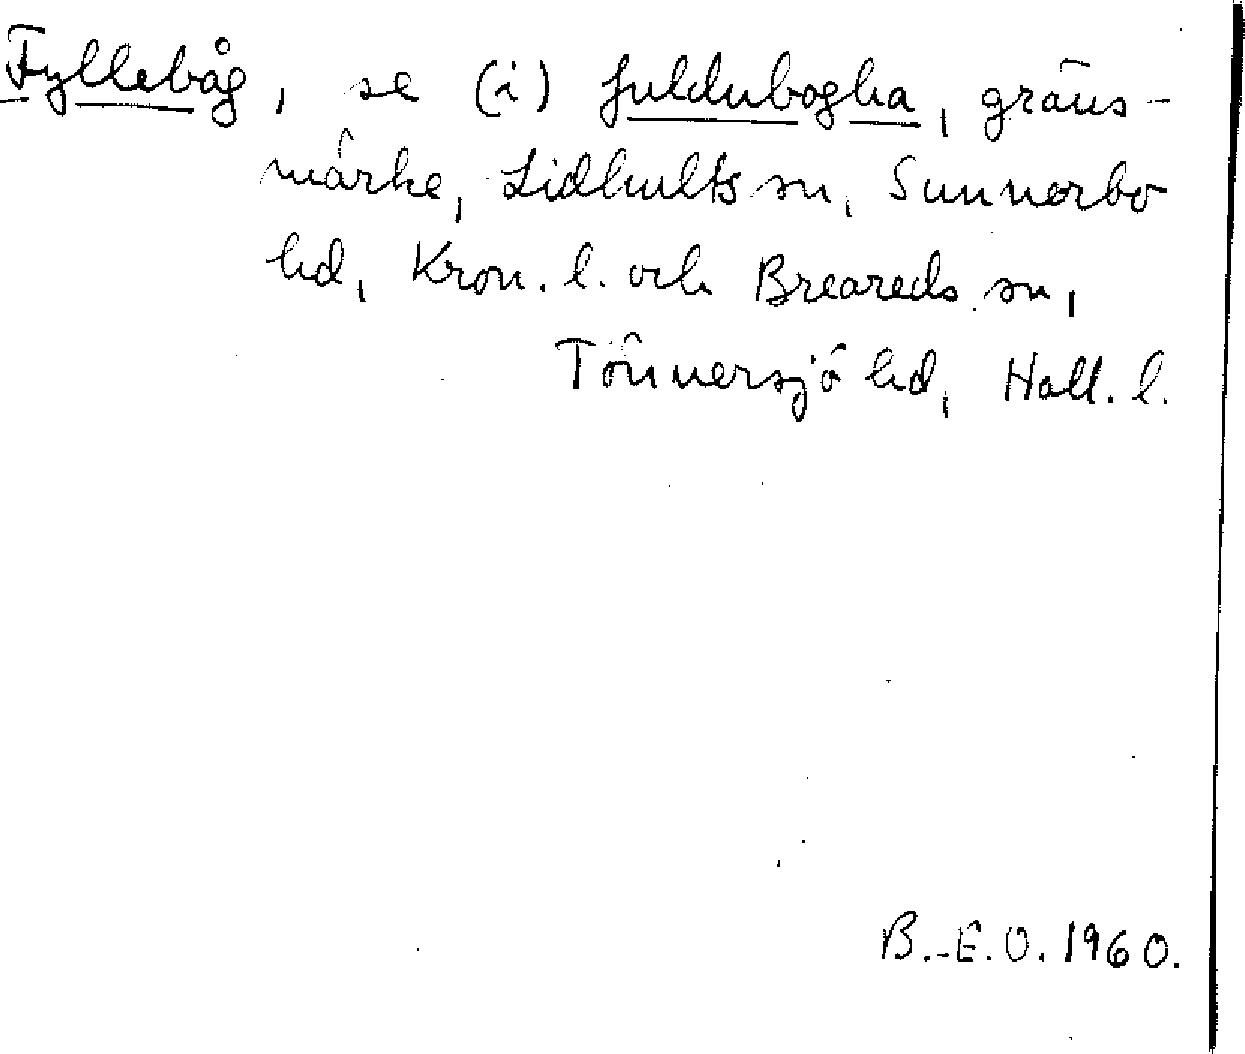 Fyllebåg, se (i) fuldubogha, gräns-
märke, Lidhults sn, Sunnerbo
hd, Kron. l. och Breareds sn,
Tönnersjö hd, Hall. l.
B.-E.O. 1960.